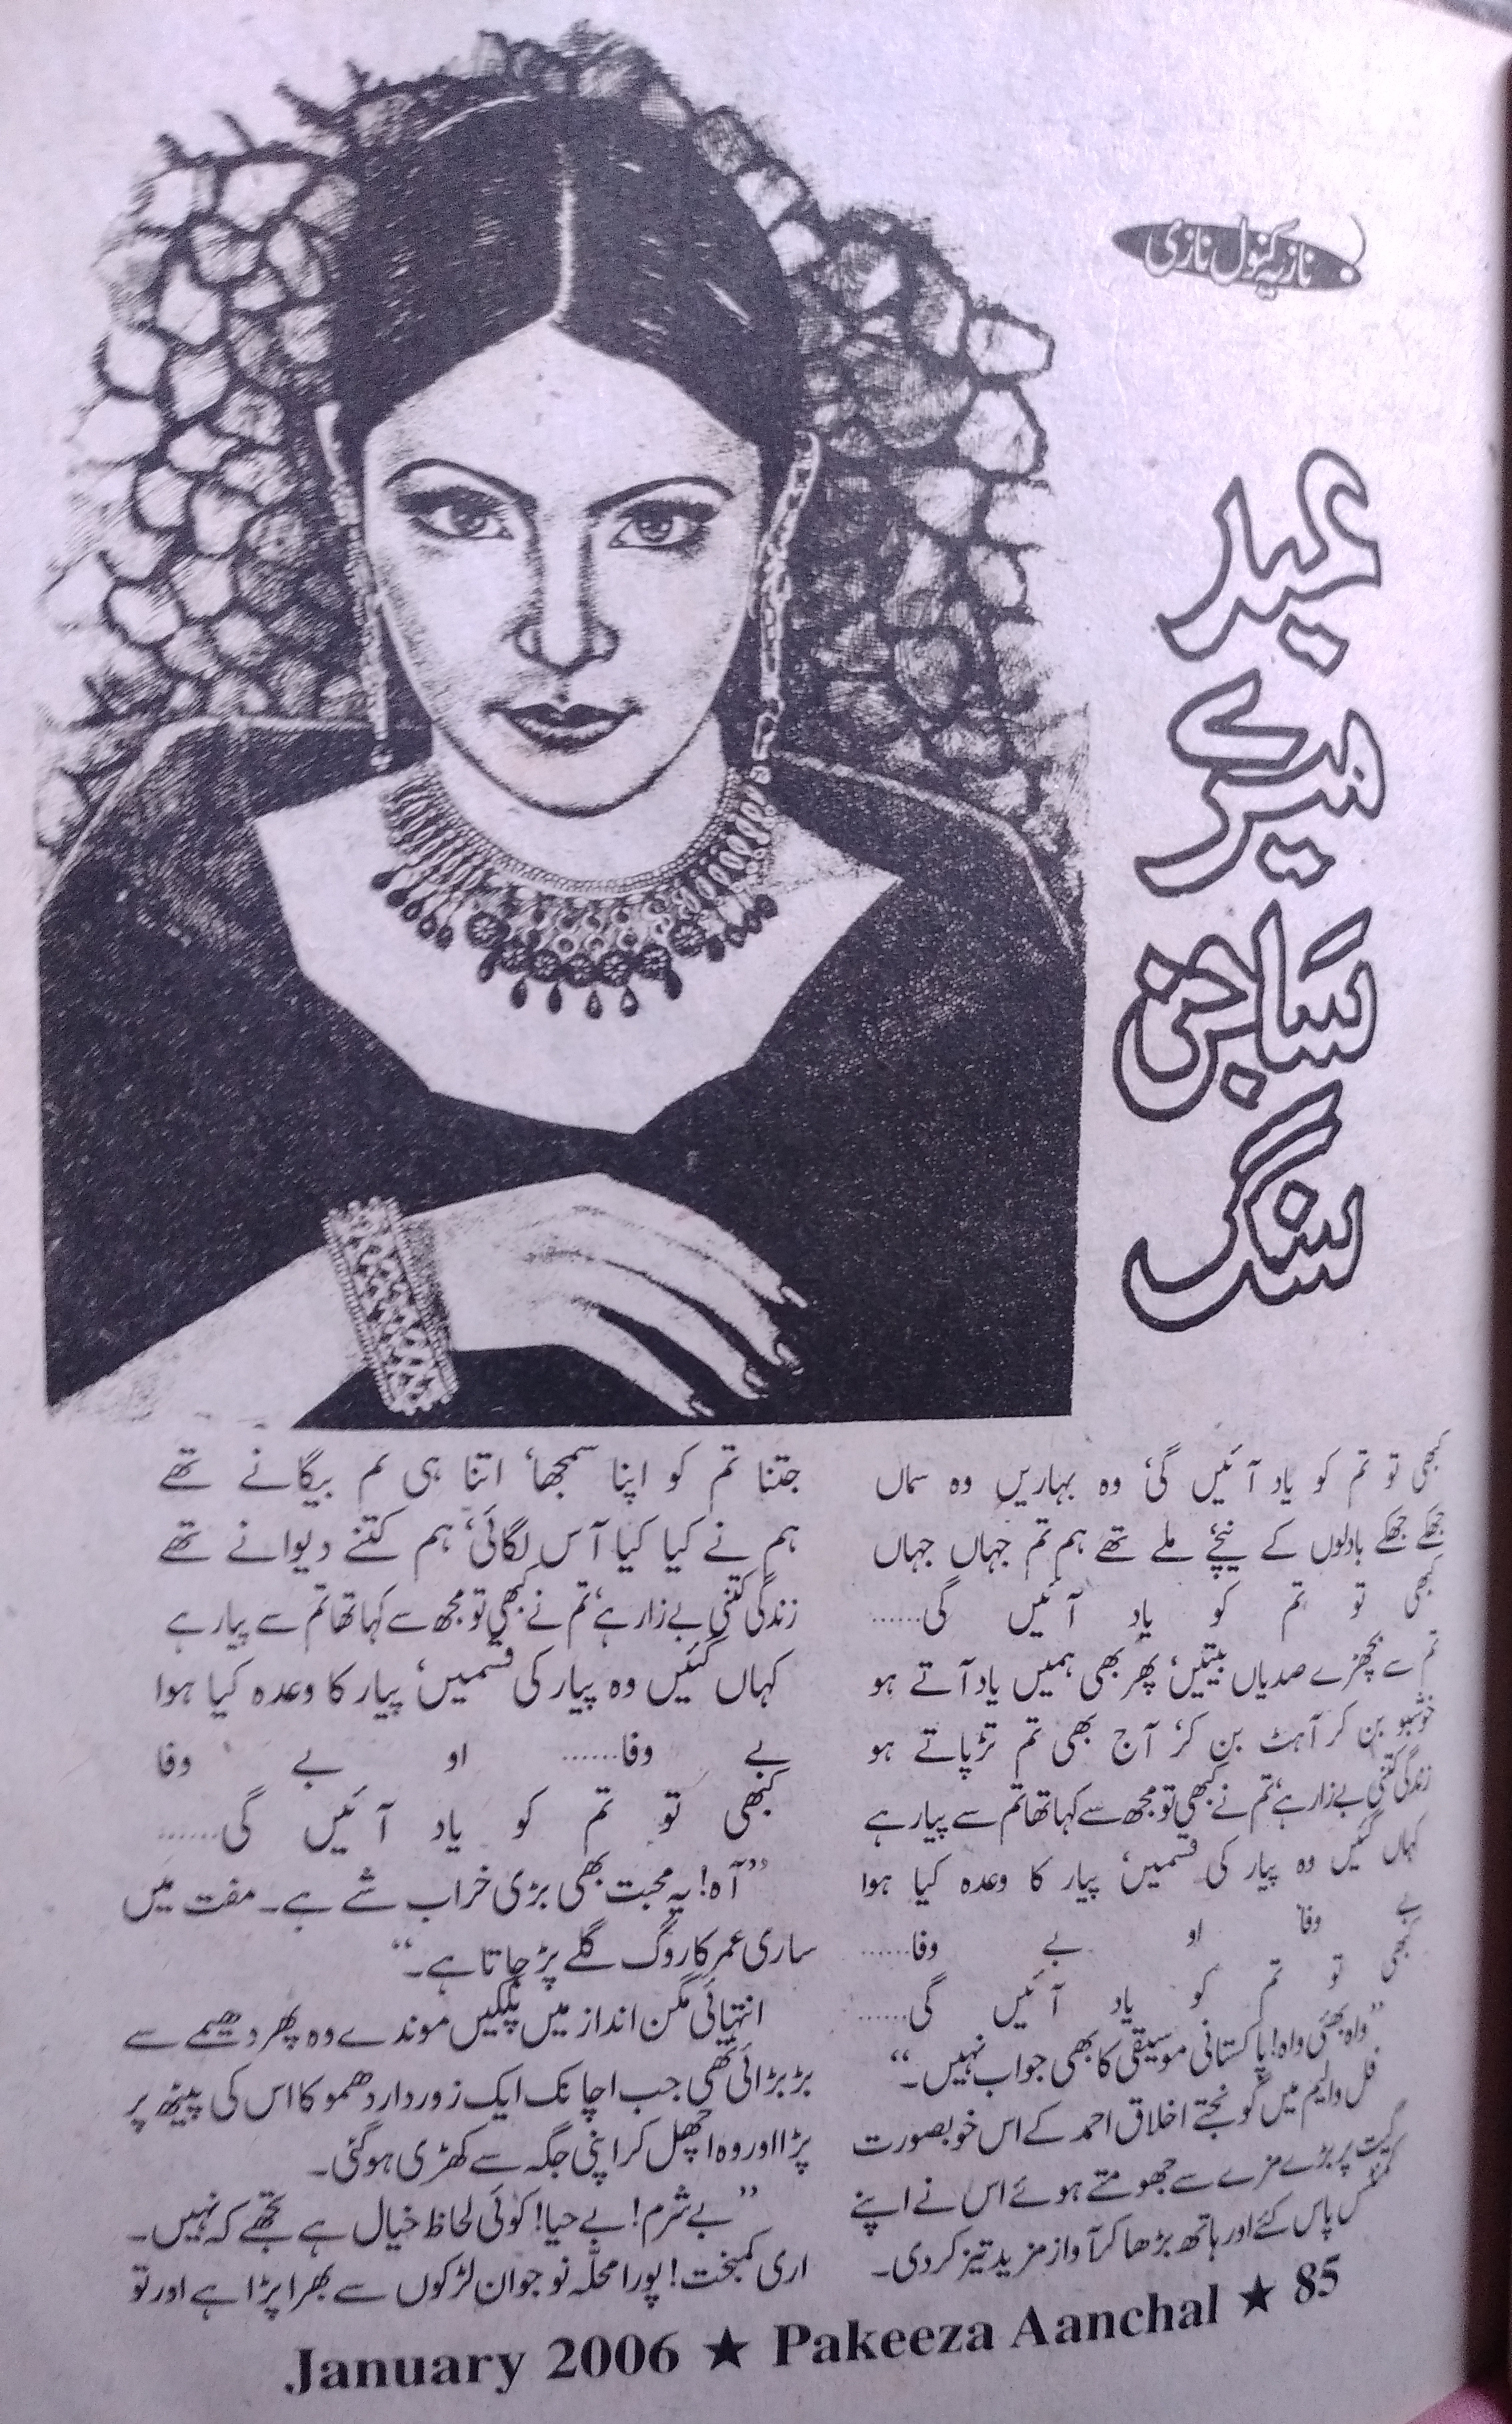 نازیہ کنول نازی
عید
میرے
ساجن
سنگ
کبھی تو تم کو یاد آئیں گی وہ بہاریں وہ سماں
جھکے جھکے بادلوں کے نیچے ملے تھے ہم تم جہاں جہاں
کبھی تو تم کو یاد آئیں گی......
تم سے بچھڑے صدیاں بیتیں، پھر بھی ہمیں یاد آتے ہو
خوشبو بن کر آہٹ بن کر، آج بھی تم تڑپاتے ہو
زندگی کتنی بے زار ہے، تم نے کبھی تو مجھ سے کہا تھا تم سے پیار ہے
کہاں گئیں وہ پیار کی قسمیں، پیار کا وعدہ کیا ہوا
بے وفا او بے وفا......
کبھی تو تم کو یاد آئیں گی......
”واہ بھئی واہ! پاکستانی موسیقی کا بھی جواب نہیں۔“
فل والیم میں گونجتے اخلاق احمد کے اس خوبصورت
گیت پر بڑے مزے سے جھومتے ہوئے اس نے اپنے
کمنٹس پاس کئے اور ہاتھ بڑھا کر آواز مزید تیز کر دی۔
جتنا تم کو اپنا سمجھا، اتنا ہی تم بیگانے تھے
ہم نے کیا کیا آس لگائی، ہم کتنے دیوانے تھے
زندگی کتنی بے زار ہے، تم نے کبھی تو مجھ سے کہا تھا تم سے پیار ہے
کہاں گئیں وہ پیار کی قسمیں، پیار کا وعدہ کیا ہوا
بے وفا...... او بے وفا
کبھی تو تم کو یاد آئیں گی......
”آہ! یہ محبت بھی بڑی خراب شے ہے۔ مفت میں
ساری عمر کا روگ گلے پڑ جاتا ہے۔“
انتہائی مگن انداز میں پلکیں موندے وہ پھر دھیمے سے
بڑبڑائی تھی جب اچانک ایک زوردار دھموکا اس کی پیٹھ پر
پڑا اور وہ اچھل کر اپنی جگہ سے کھڑی ہو گئی۔
”بے شرم! بے حیا! کوئی لحاظ خیال ہے تجھے کہ نہیں۔
اری کمبخت! پورا محلّہ نوجوان لڑکوں سے بھرا پڑا ہے اور تو
January 2006 ★ Pakeeza Aanchal ★ 85